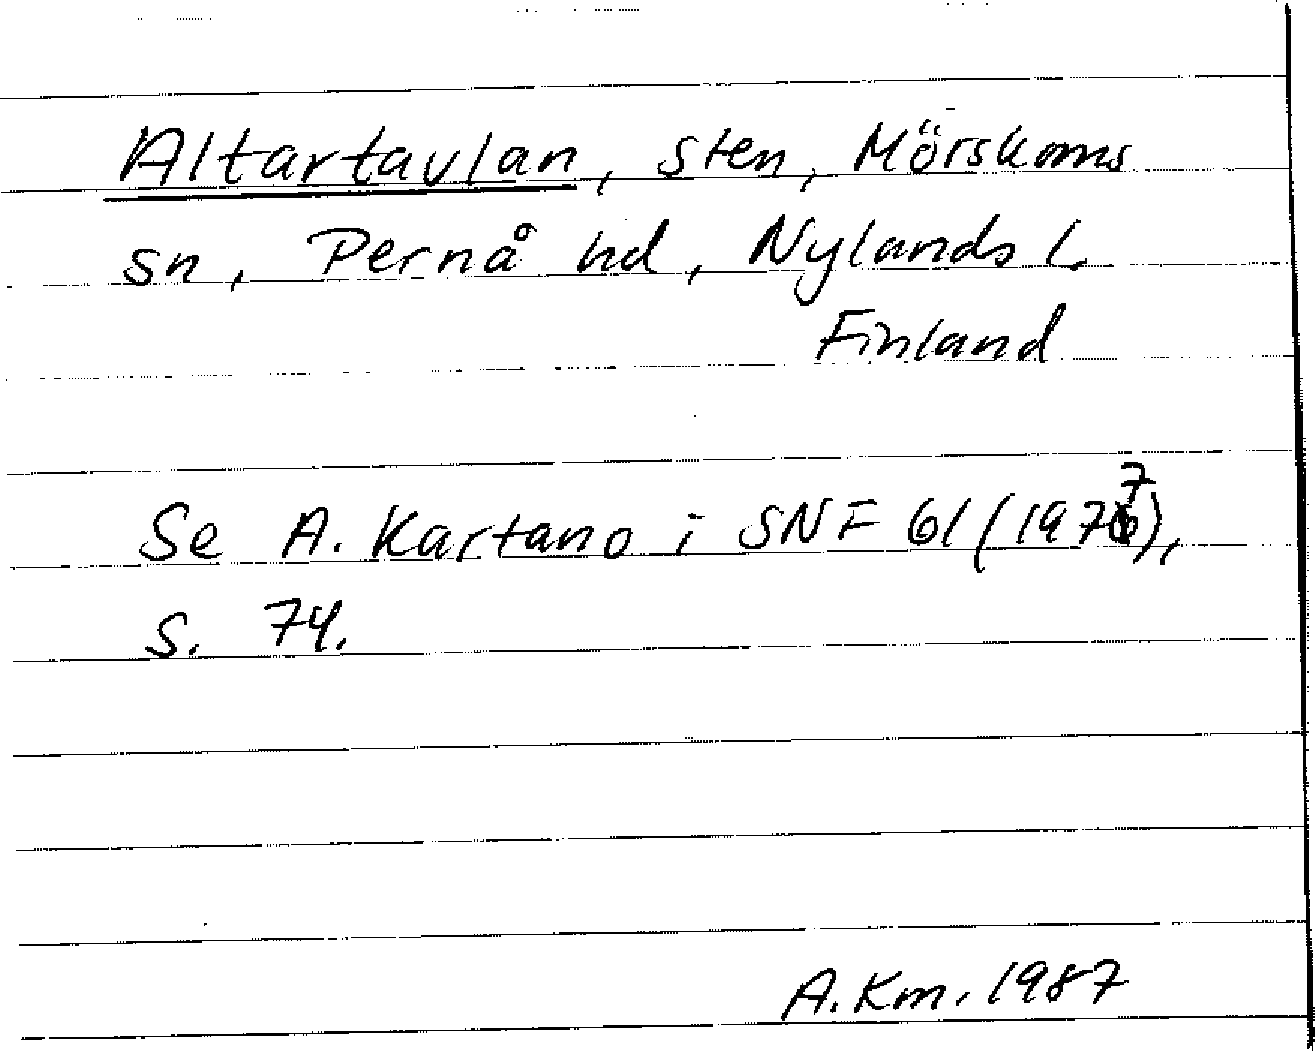 Altartavlan, sten, Mörskoms
sn, Pernå hd, Nylands l.
Finland
Se A. Kartano i SNF 61 (1977),
s. 74.
A. Km. 1987